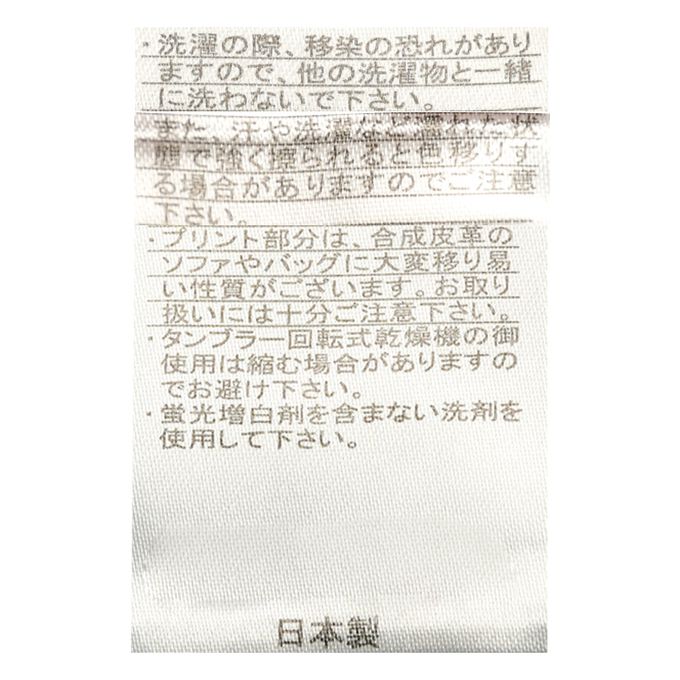 ・洗濯の際、移染の恐れがあり
ますので、他の洗濯物と一緒
に洗わないで下さい。
また、汗や洗濯など濡れた状
態で強く擦られると色移りす
る場合がありますのでご注意
下さい。
・プリント部分は、合成皮革の
ソファやバッグに大変移り易
い性質がございます。お取り
扱いには十分ご注意下さい。
・タンブラー回転式乾燥機の御
使用は縮む場合がありますの
でお避け下さい。
・蛍光増白剤を含まない洗剤を
使用して下さい。
日本製